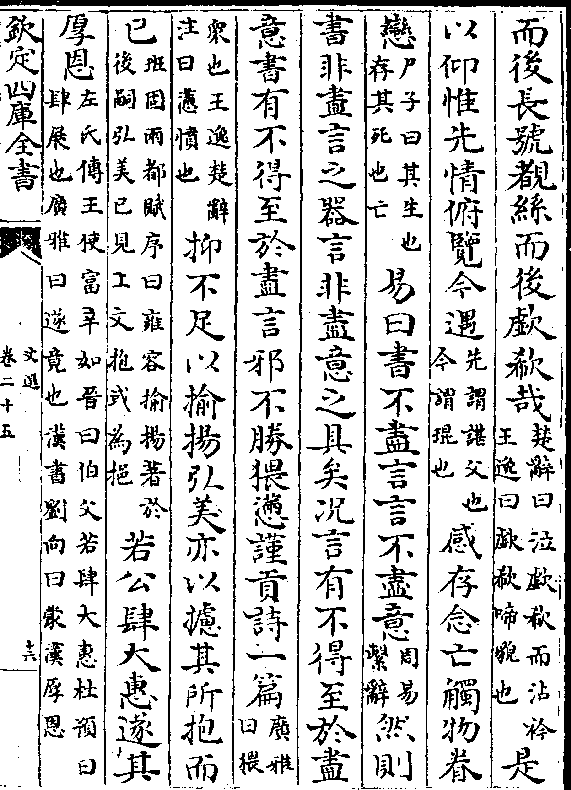 而後長號覩絲而後歔欷哉楚辭曰泣歔欷而沾衿王逸曰歔欷啼貌也是
以仰惟先情俯覽今遇先謂諶父也今謂琨也感存念亡觸物眷
戀尸子曰其生也存其死也亡易曰書不盡言言不盡意周易繫辭然則
書非盡言之器言非盡意之具矣况言有不得至於盡
意書有不得至於盡言邪不勝猥懣謹貢詩一篇廣雅曰猥
衆也王逸楚辭注曰懣憤也抑不足以揄揚弘美亦以攄其所抱而
已班固兩都賦序曰雍容揄揚著於後嗣弘美已見上文抱或為挹若公肆大惠遂其
厚恩左氏傳王使富辛如晉曰伯父若肆大惠杜預曰肆展也廣雅曰遂竟也漢書劉向曰蒙漢厚恩
欽定四庫全書
文選
卷二十五
十六